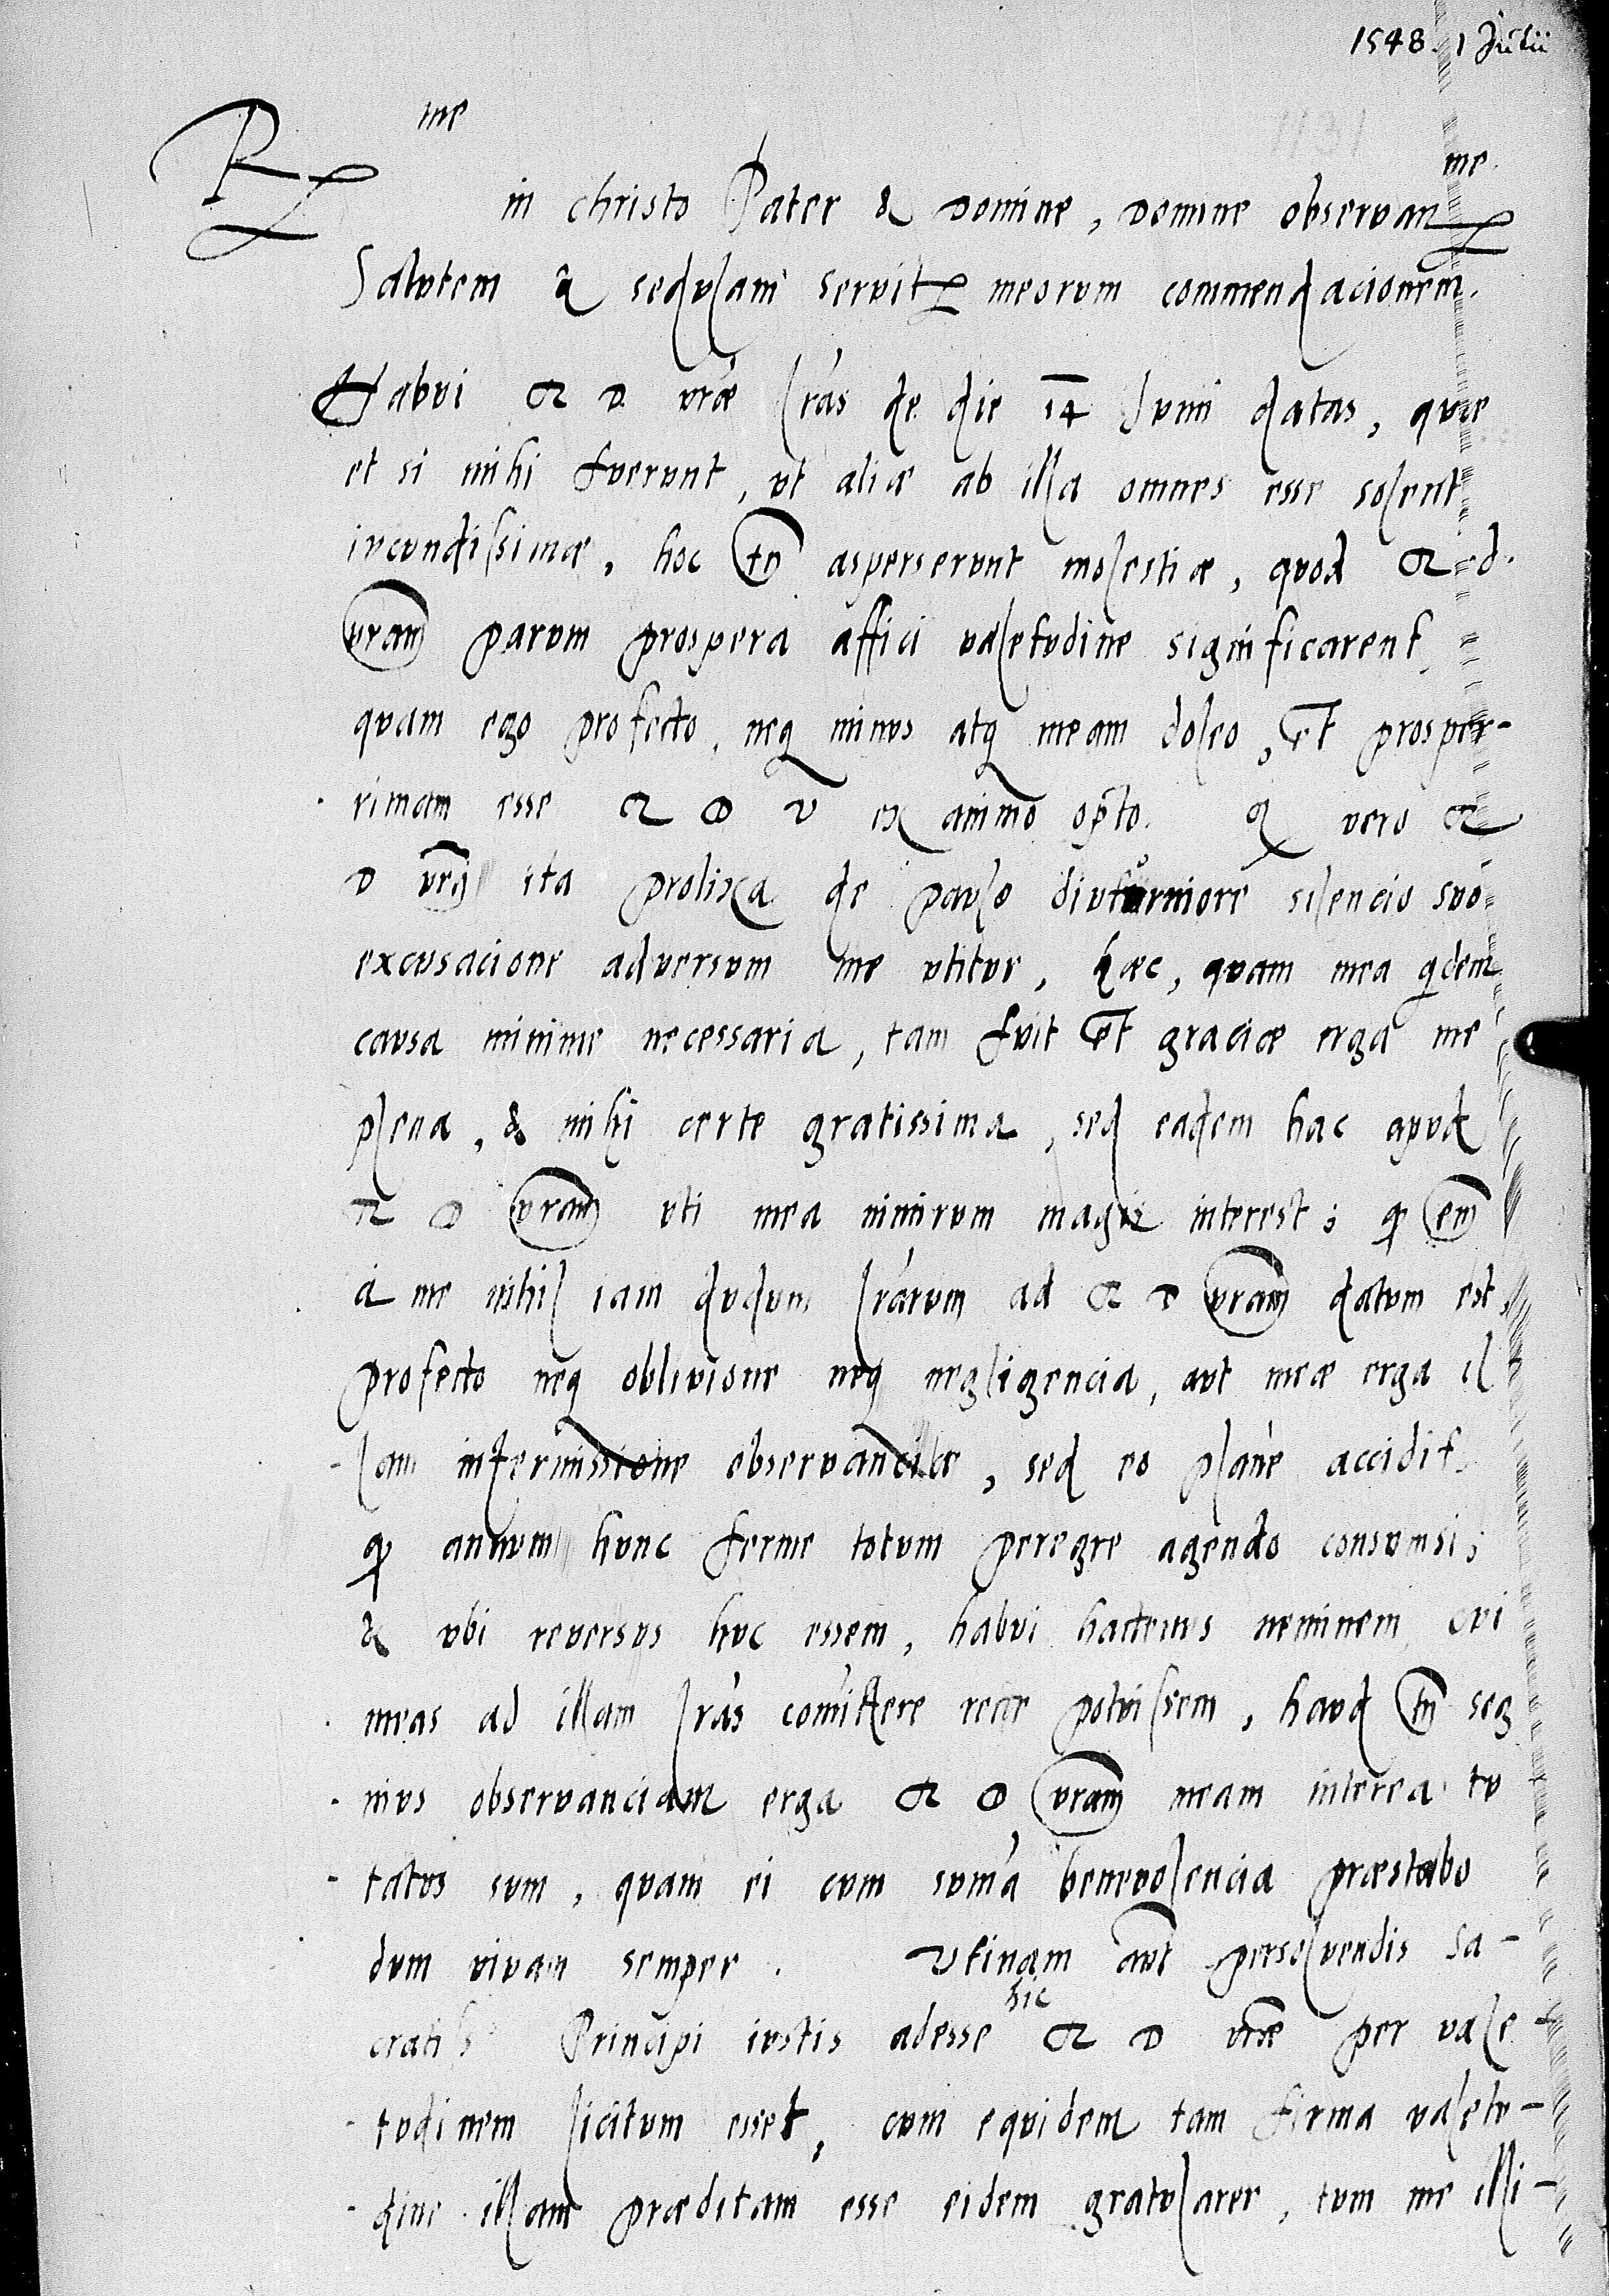 1548. 1 Julii
R me
in christo Pater & Domine, Domine observan me.
Salutem & sedulam servit meorum commendacionem.
Habui R D vræ lras de die 14 Junii datas, quæ
et si mihi fuerunt, ut aliæ ab illa omnes esse solent
iucundissimæ, hoc tn asperserunt molestiæ, quod R d.
vram parum prospera affici valetudine significarent,
quam ego profecto, neq minus atq meam doleo, et prosper-
rimam esse R D V ex animo opto. q vero R
D vra ita prolixa de paulo diuturniore silencio suo
excusacione adversum me utitur, hæc, quam mea qdem
causa minime necessaria, tam fuit et graciæ erga me
plena, & mihi certe gratissima, sed eadem hac apud
R D vram uti mea nimirum magis interest; q em
a me nihil iam dudum lrarum ad R D vram datum est,
profecto neq oblivione neq negligencia, aut meæ erga il
lam intermissione observanciæ, sed eo plane accidit,
q annum hunc ferme totum peregre agendo consumsi;
& ubi reversus huc essem, habui hactenus neminem cui
meas ad illam lras comittere recte potuissem, haud tn seg
nius observanciam erga R D vram meam interea tu
tatus sum, quam ei cum suma benevolencia præstabo
dum vivam semper. Utinam aut persolvendis sa-
cratiss Principi iustis adesse hic R D vræ per vale
tudinem licitum esset, cum equidem tam firma valetu-
dine illam præditam esse eidem gratularer, tum me illi-